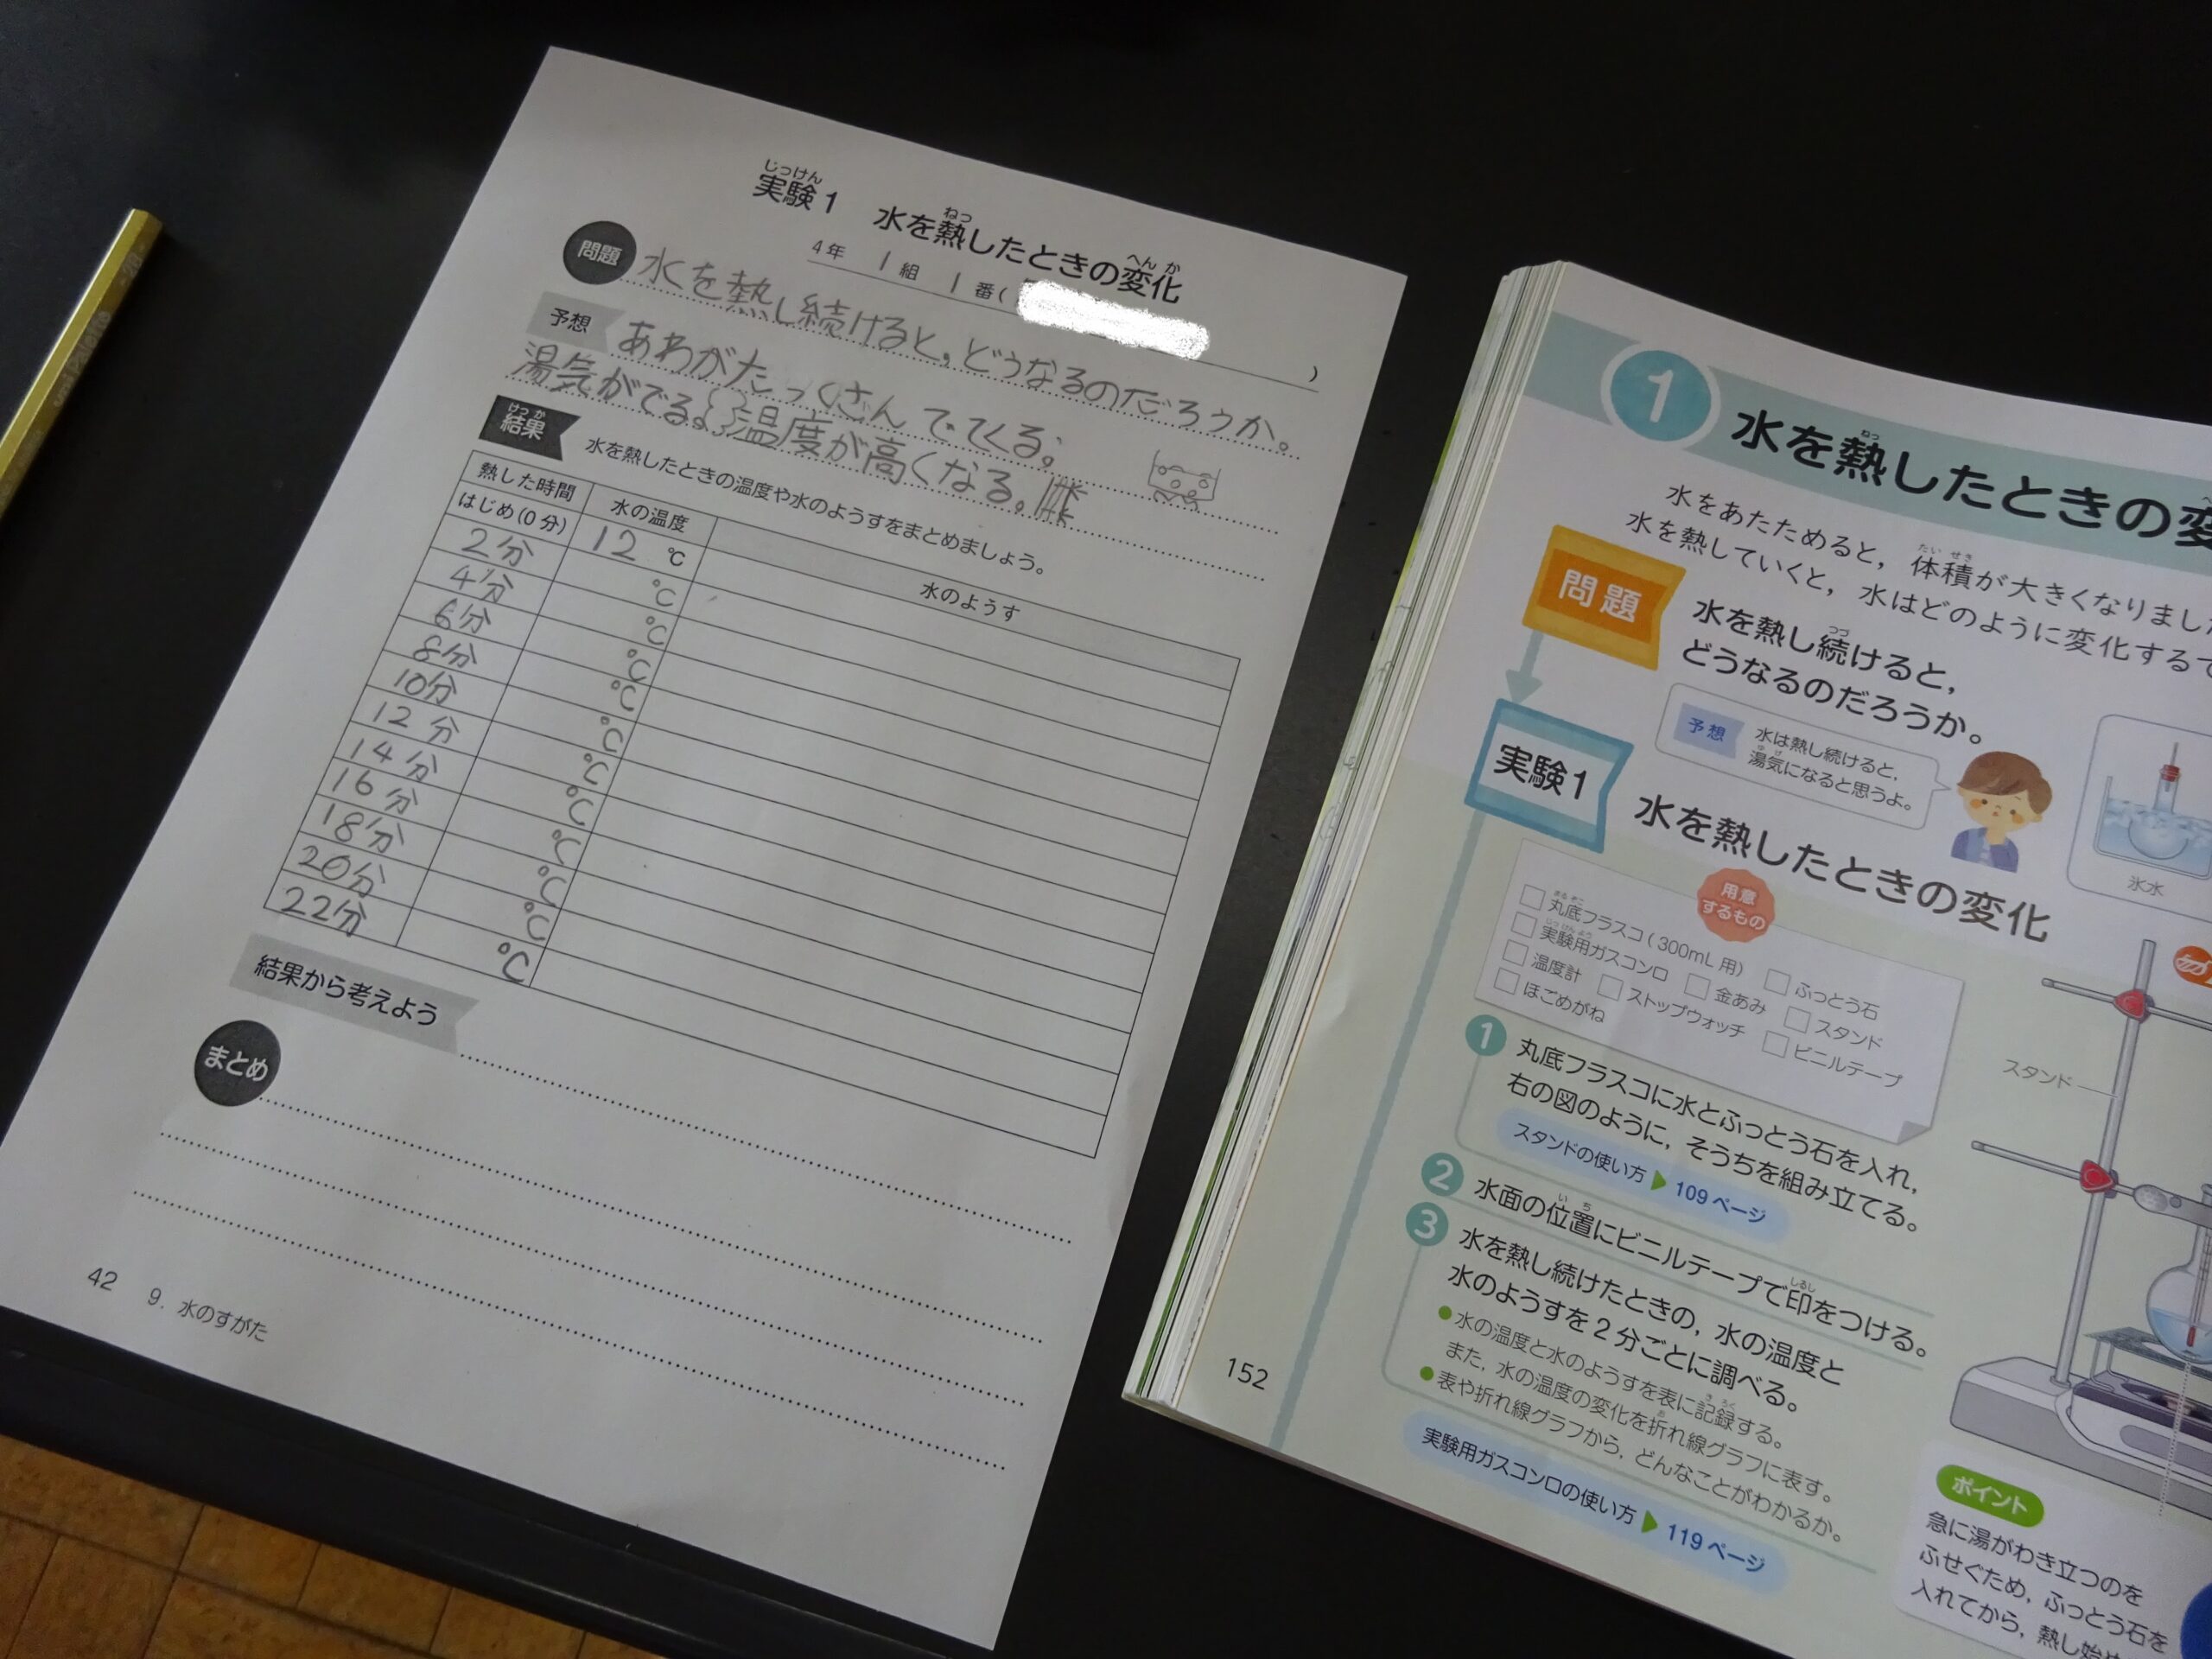 実験1 水を熱したときの変化
じっけん ねつ へんか
4年 1組 1番( )
問題 水を熱し続けると、どうなるのだろうか。
予想 あわがたっくさんでてくる。
湯気がでる。温度が高くなる。
結果 水を熱したときの温度や水のようすをまとめましょう。
けっか
熱した時間 水の温度 水のようす
はじめ(0分) 12 ℃
2分 ℃
4分 ℃
6分 ℃
8分 ℃
10分 ℃
12分 ℃
14分 ℃
16分 ℃
18分 ℃
20分 ℃
22分 ℃
結果から考えよう
まとめ
42 9. 水のすがた
1 水を熱したときの変
ねつ
水をあたためると，体積が大きくなりまし
たいせき
水を熱していくと，水はどのように変化する
問題 水を熱し続けると，
つづ
どうなるのだろうか。
予想 水は熱し続けると，
湯気になると思うよ。
ゆげ
氷水
実験1 水を熱したときの変化
用意
するもの
丸底フラスコ(300mL用) ふっとう石
まるぞこ
実験用ガスコンロ 金あみ スタンド
じっけんよう
温度計 ストップウォッチ ビニルテープ
ほごめがね
1 丸底フラスコに水とふっとう石を入れ，
右の図のように，そうちを組み立てる。
スタンドの使い方 109ページ
2 水面の位置にビニルテープで印をつける。
いち しるし
3 水を熱し続けたときの，水の温度と
水のようすを2分ごとに調べる。
水の温度と水のようすを表に記録する。
きろく
また，水の温度の変化を折れ線グラフに表す。
お
表や折れ線グラフから，どんなことがわかるか。
実験用ガスコンロの使い方 119ページ
152
スタンド
ポイント
急に湯がわき立つのを
ふせぐため，ふっとう石を
入れてから，熱し始